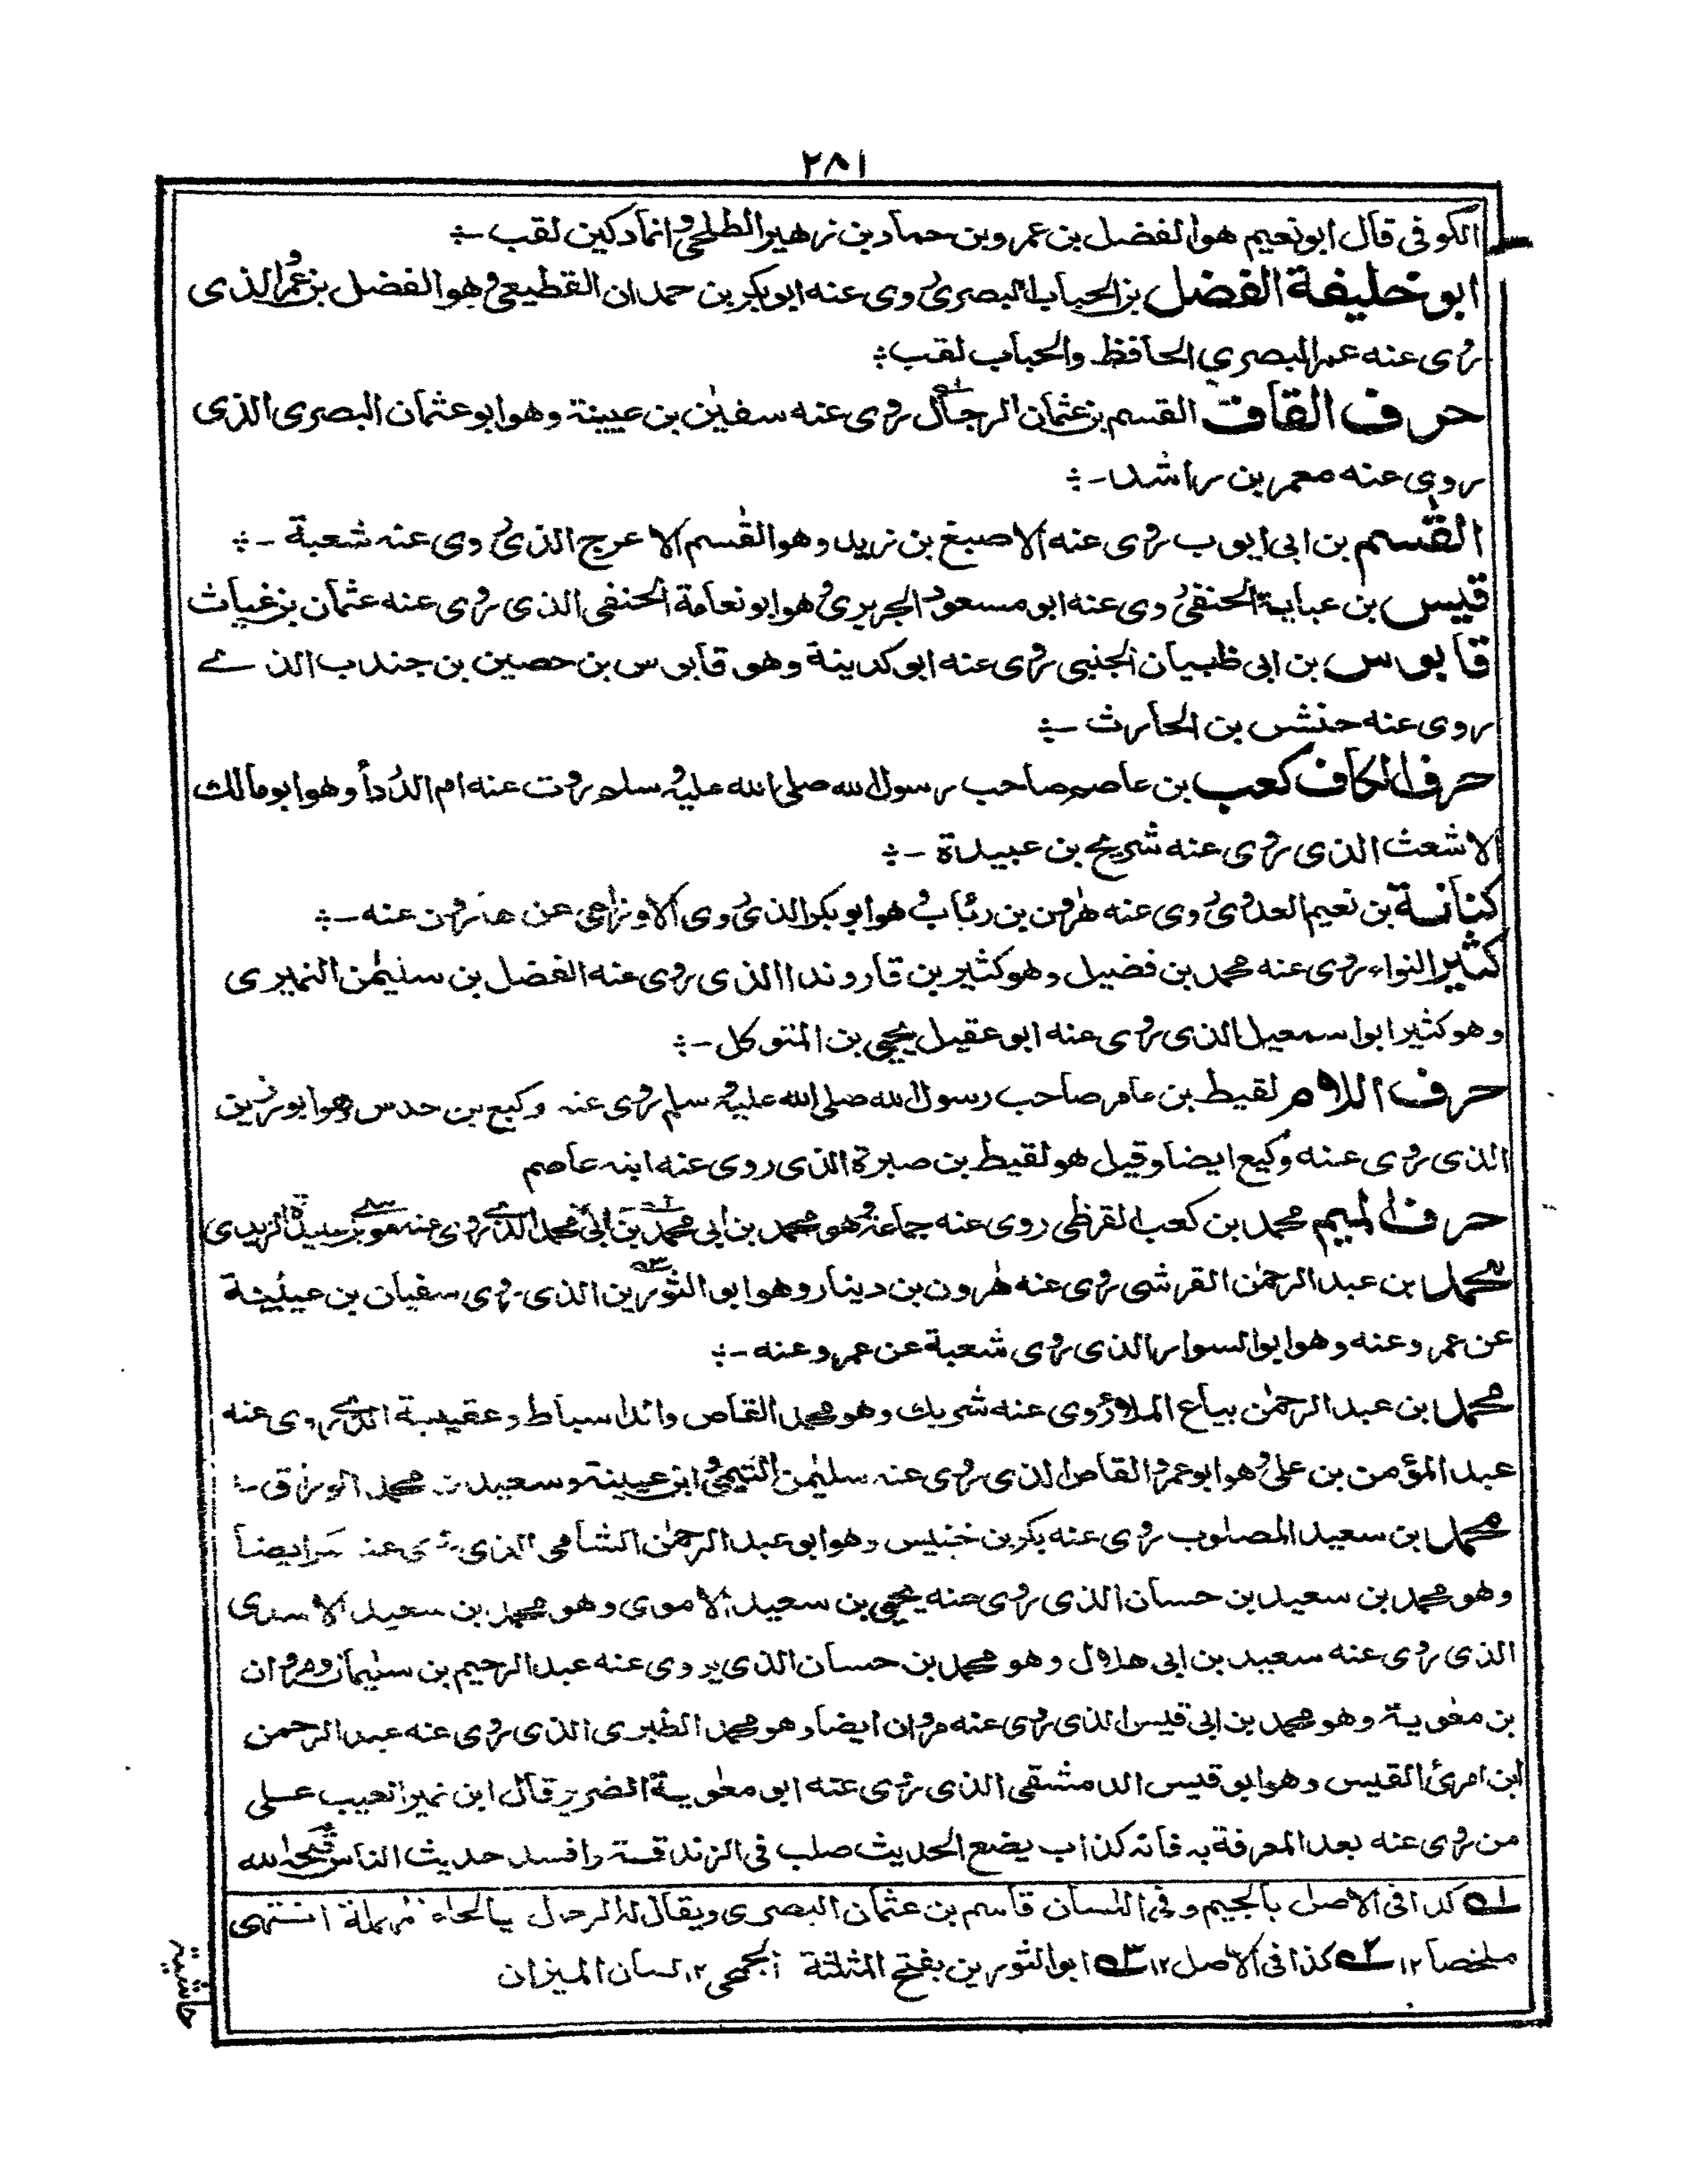 ٢٨١
الكوفى قال ابو نعيم هو الفضل بن عمرو بن حماد بن زهير الطلحى وانما دكين لقب ـ؞
ابو خليفة الفضل بن الحباب البصرى روى عنه ابو بكر بن حمدان القطيعى وهو الفضل بن عمرو الذى
روى عنه عمر البصري الحافظ والحباب لقب؞
حرف القاف القسم بن عثمان الرجال روى عنه سفيٰن بن عيينة وهو ابو عثمان البصرى الذى
روى عنه معمر بن راشد ـ؞
القٰسم بن ابى ايوب روى عنه الاصبغ بن زيد وهو القٰسم الاعرج الذى روى عنه شعبة ـ؞
قيس بن عباية الحنفى روى عنه ابو مسعود الجريرى وهو ابو نعامة الحنفى الذى روى عنه عثمان بن غياث
قابوس بن ابى ظبيان الجنبى روى عنه ابو كدينة وهو قابوس بن حصين بن جندب الذے
روى عنه حنش بن الحارث ـ؞
حرف الكاف كعب بن عاصم صاحب رسول الله صلى الله عليه وسلم روت عنه ام الدرداً وهو ابو مالك
الاشعث الذى روى عنه شريح بن عبيدة ـ؞
كنانة بن نعيم العدوى روى عنه هٰرون بن رئاب وهو ابو بكر الذى روى الاوزاعى عن هارون عنه ـ؞
كثير النواء روى عنه محمد بن فضيل وهو كثير بن قاروندا الذى روى عنه الفضل بن سليمٰن النميرى
وهو كثير ابو اسمعيل الذى روى عنه ابو عقيل يحيى بن المتوكل ـ؞
حرف اللام لقيط بن عامر صاحب رسول الله صلى الله عليه وسلم روى عنه وكيع بن حدس وهو ابو رزين
الذى روى عنه وكيع ايضا وقيل هو لقيط بن صبرة الذى روى عنه ابنه عاصم
حرف الميم محمد بن كعب القرظى روى عنه جماعة وهو محمد بن ابى محمد بن ابى محمد الذے روى عنه موسى بن عبيدة الزبدى
محمد بن عبد الرحمٰن القرشى روى عنه هٰرون بن دينار وهو ابو الثورين الذى روى سفيان بن عيينة
عن عمرو عنه وهو ابو السوار الذى روى شعبة عن عمرو عنه ـ؞
محمد بن عبد الرحمٰن بياع الملاء روى عنه شريك وهو محمد القاص والد اسباط وعقيبة الذے روى عنه
عبد المؤمن بن على وهو ابو عمرو القاص الذى روى عنه سليمٰن التيمى وابن عيينة وسعيد بن محمد الوراق ـ؞
محمد بن سعيد المصلوب روى عنه بكر بن خنيس وهو ابو عبد الرحمٰن الشامى الذى روى عنه ايضاً
وهو محمد بن سعيد بن حسان الذى روى عنه يحيى بن سعيد الاموى وهو محمد بن سعيد الاسدى
الذى روى عنه سعيد بن ابى هلال وهو محمد بن حسان الذى يروى عنه عبد الرحيم بن سليمان ومروان
بن معٰوية وهو محمد بن ابى قيس الذى روى عنه مروان ايضا وهو محمد الطبرى الذى روى عنه عبد الرحمن
ابن امرئ القيس وهو ابو قيس الدمشقى الذى روى عنه ابو معٰوية الضرير قال ابن نمير العيب على
من روى عنه بعد المعرفة به فانه كذاب يضع الحديث صلب فى الزندقة وافسد حديث الناس قبحه الله
١ه كذا فى الاصل بالجيم وفى اللسان قاسم بن عثمان البصرى ويقال له الرحال بالحاء مهملة انتهى
ملخصا ١٢ ٢ه كذا فى الاصل ١٢ ٣ه ابو الثورين بفتح المثلثة الجمحى ١٢ لسان الميزان
حاشية